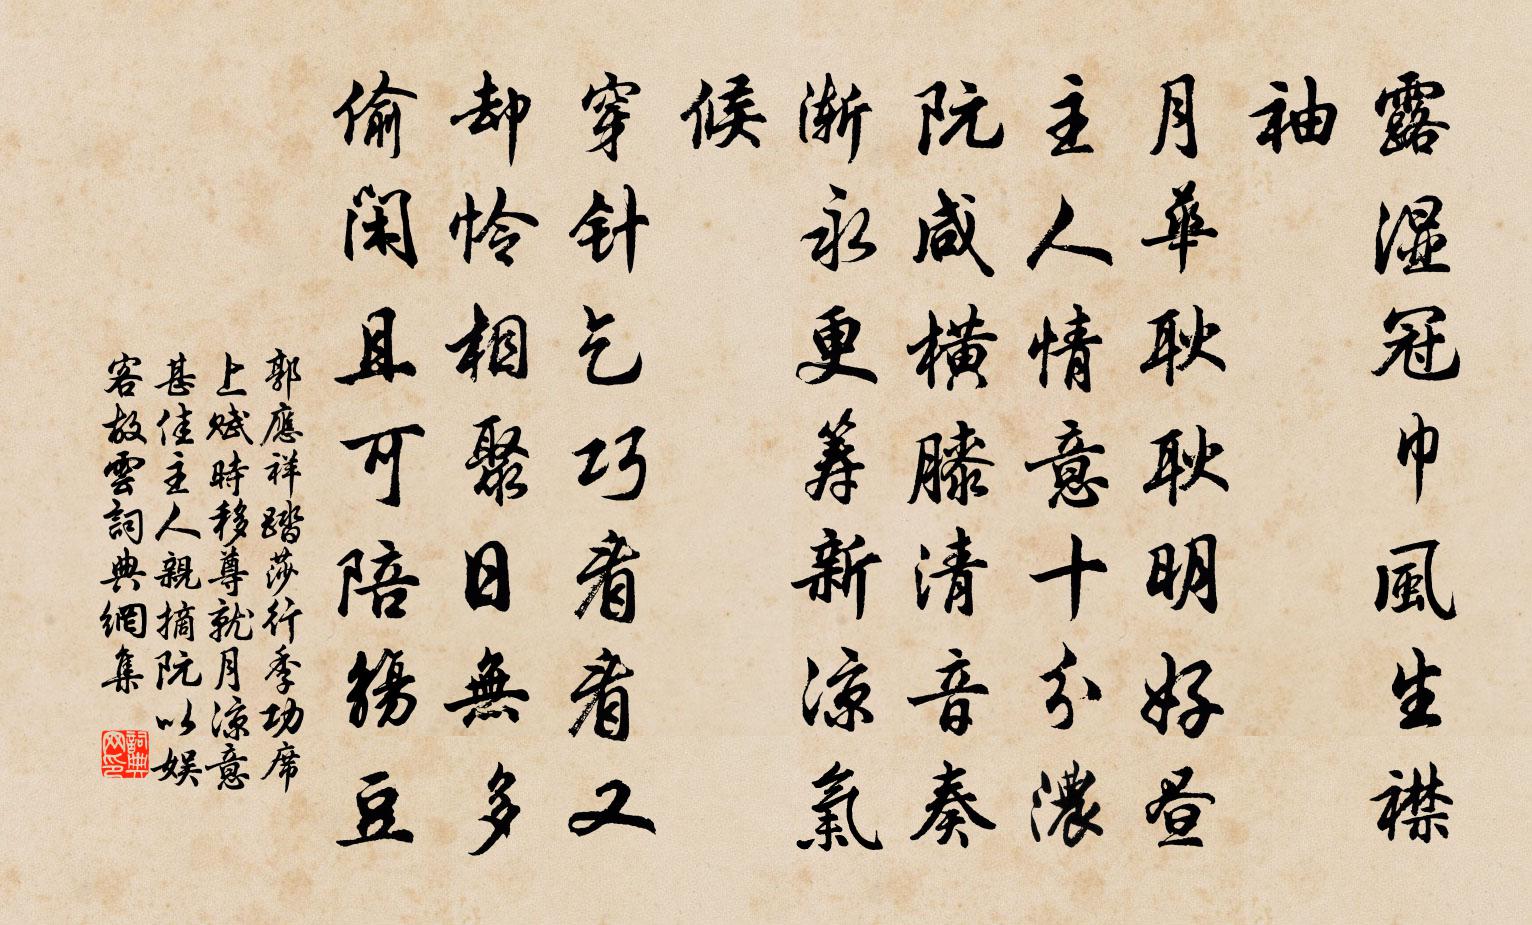 露濕冠巾風生襟
袖
月華耿耿明好晝
主人情意十分濃
阮咸橫膝清音奏
漸永更籌新涼氣
候
穿針乞巧看看又
却憐相聚日無多
偷閑且可陪觴豆
郭應祥踏莎行季功席
上賦時移尊就月涼意
甚佳主人親摘阮以娛
客故雲詞典網集
詞典
网印